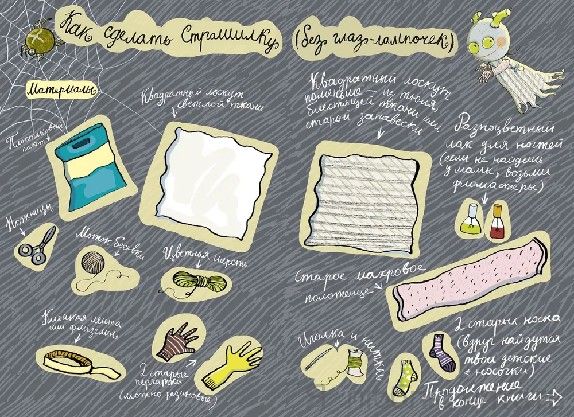 Как сделать Страшилку
(без глаз-лампочек)
Материалы
Квадратный лоскут
светлой ткани
Квадратный лоскут
поменьше —
блестящей ткани или
старой занавески
Разноцветный
лак для ногтей
(если не найдёшь
у мамы, возьми
фломастеры)
Ножницы
Моток бечёвки
Цветная шерсть
Старое махровое
полотенце
Клейкая лента
или
2 старые
перчатки
(можно резиновые)
Иголка и нитки
2 старых носка
(вдруг найдутся
твои детские
носочки)
Продолжение
в конце книги